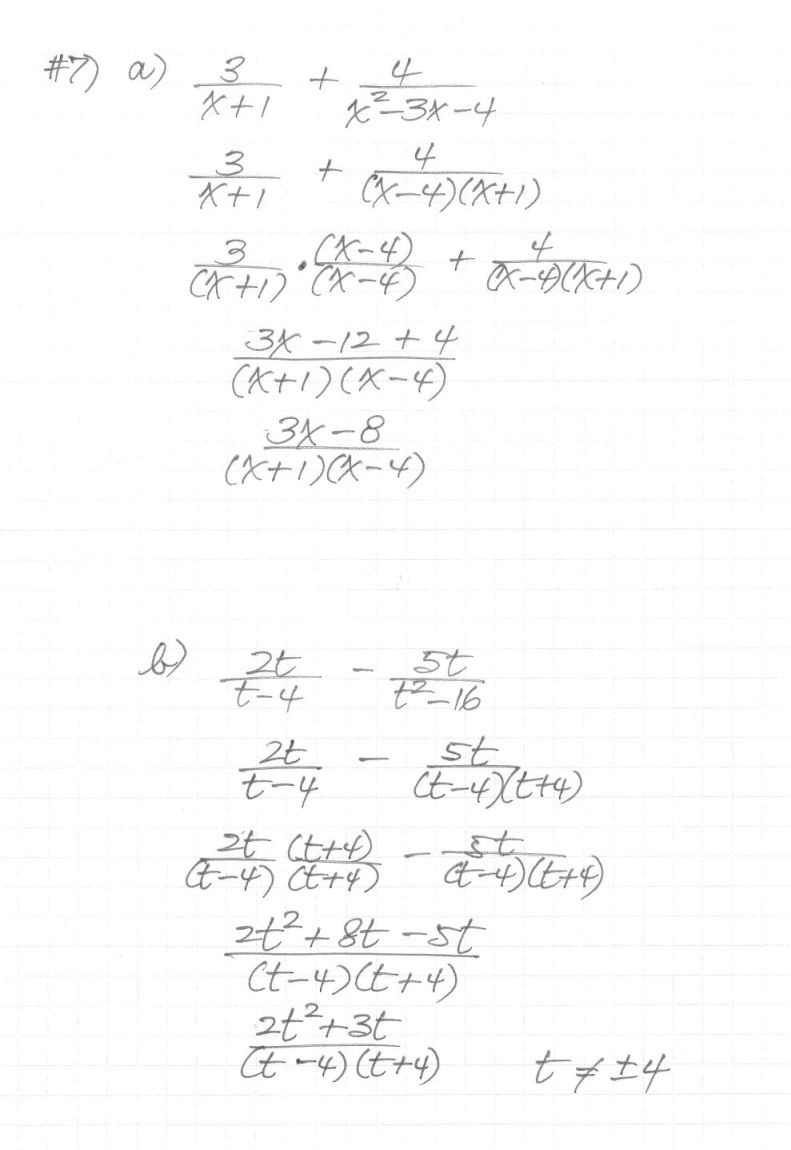 #7) a) 3/(x+1) + 4/(x²-3x-4)
3/(x+1) + 4/((x-4)(x+1))
3/(x+1) · (x-4)/(x-4) + 4/((x-4)(x+1))
(3x-12+4)/((x+1)(x-4))
(3x-8)/((x+1)(x-4))
b) 2t/(t-4) - 5t/(t²-16)
2t/(t-4) - 5t/((t-4)(t+4))
2t/(t-4) (t+4)/(t+4) - 5t/((t-4)(t+4))
(2t²+8t-5t)/((t-4)(t+4))
(2t²+3t)/((t-4)(t+4)) t≠±4